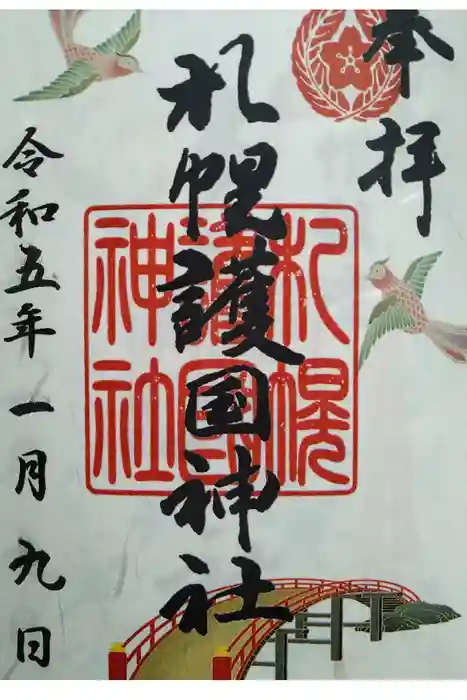 奉拝
札幌護國神社
札幌
護國
神社
令和五年一月九日